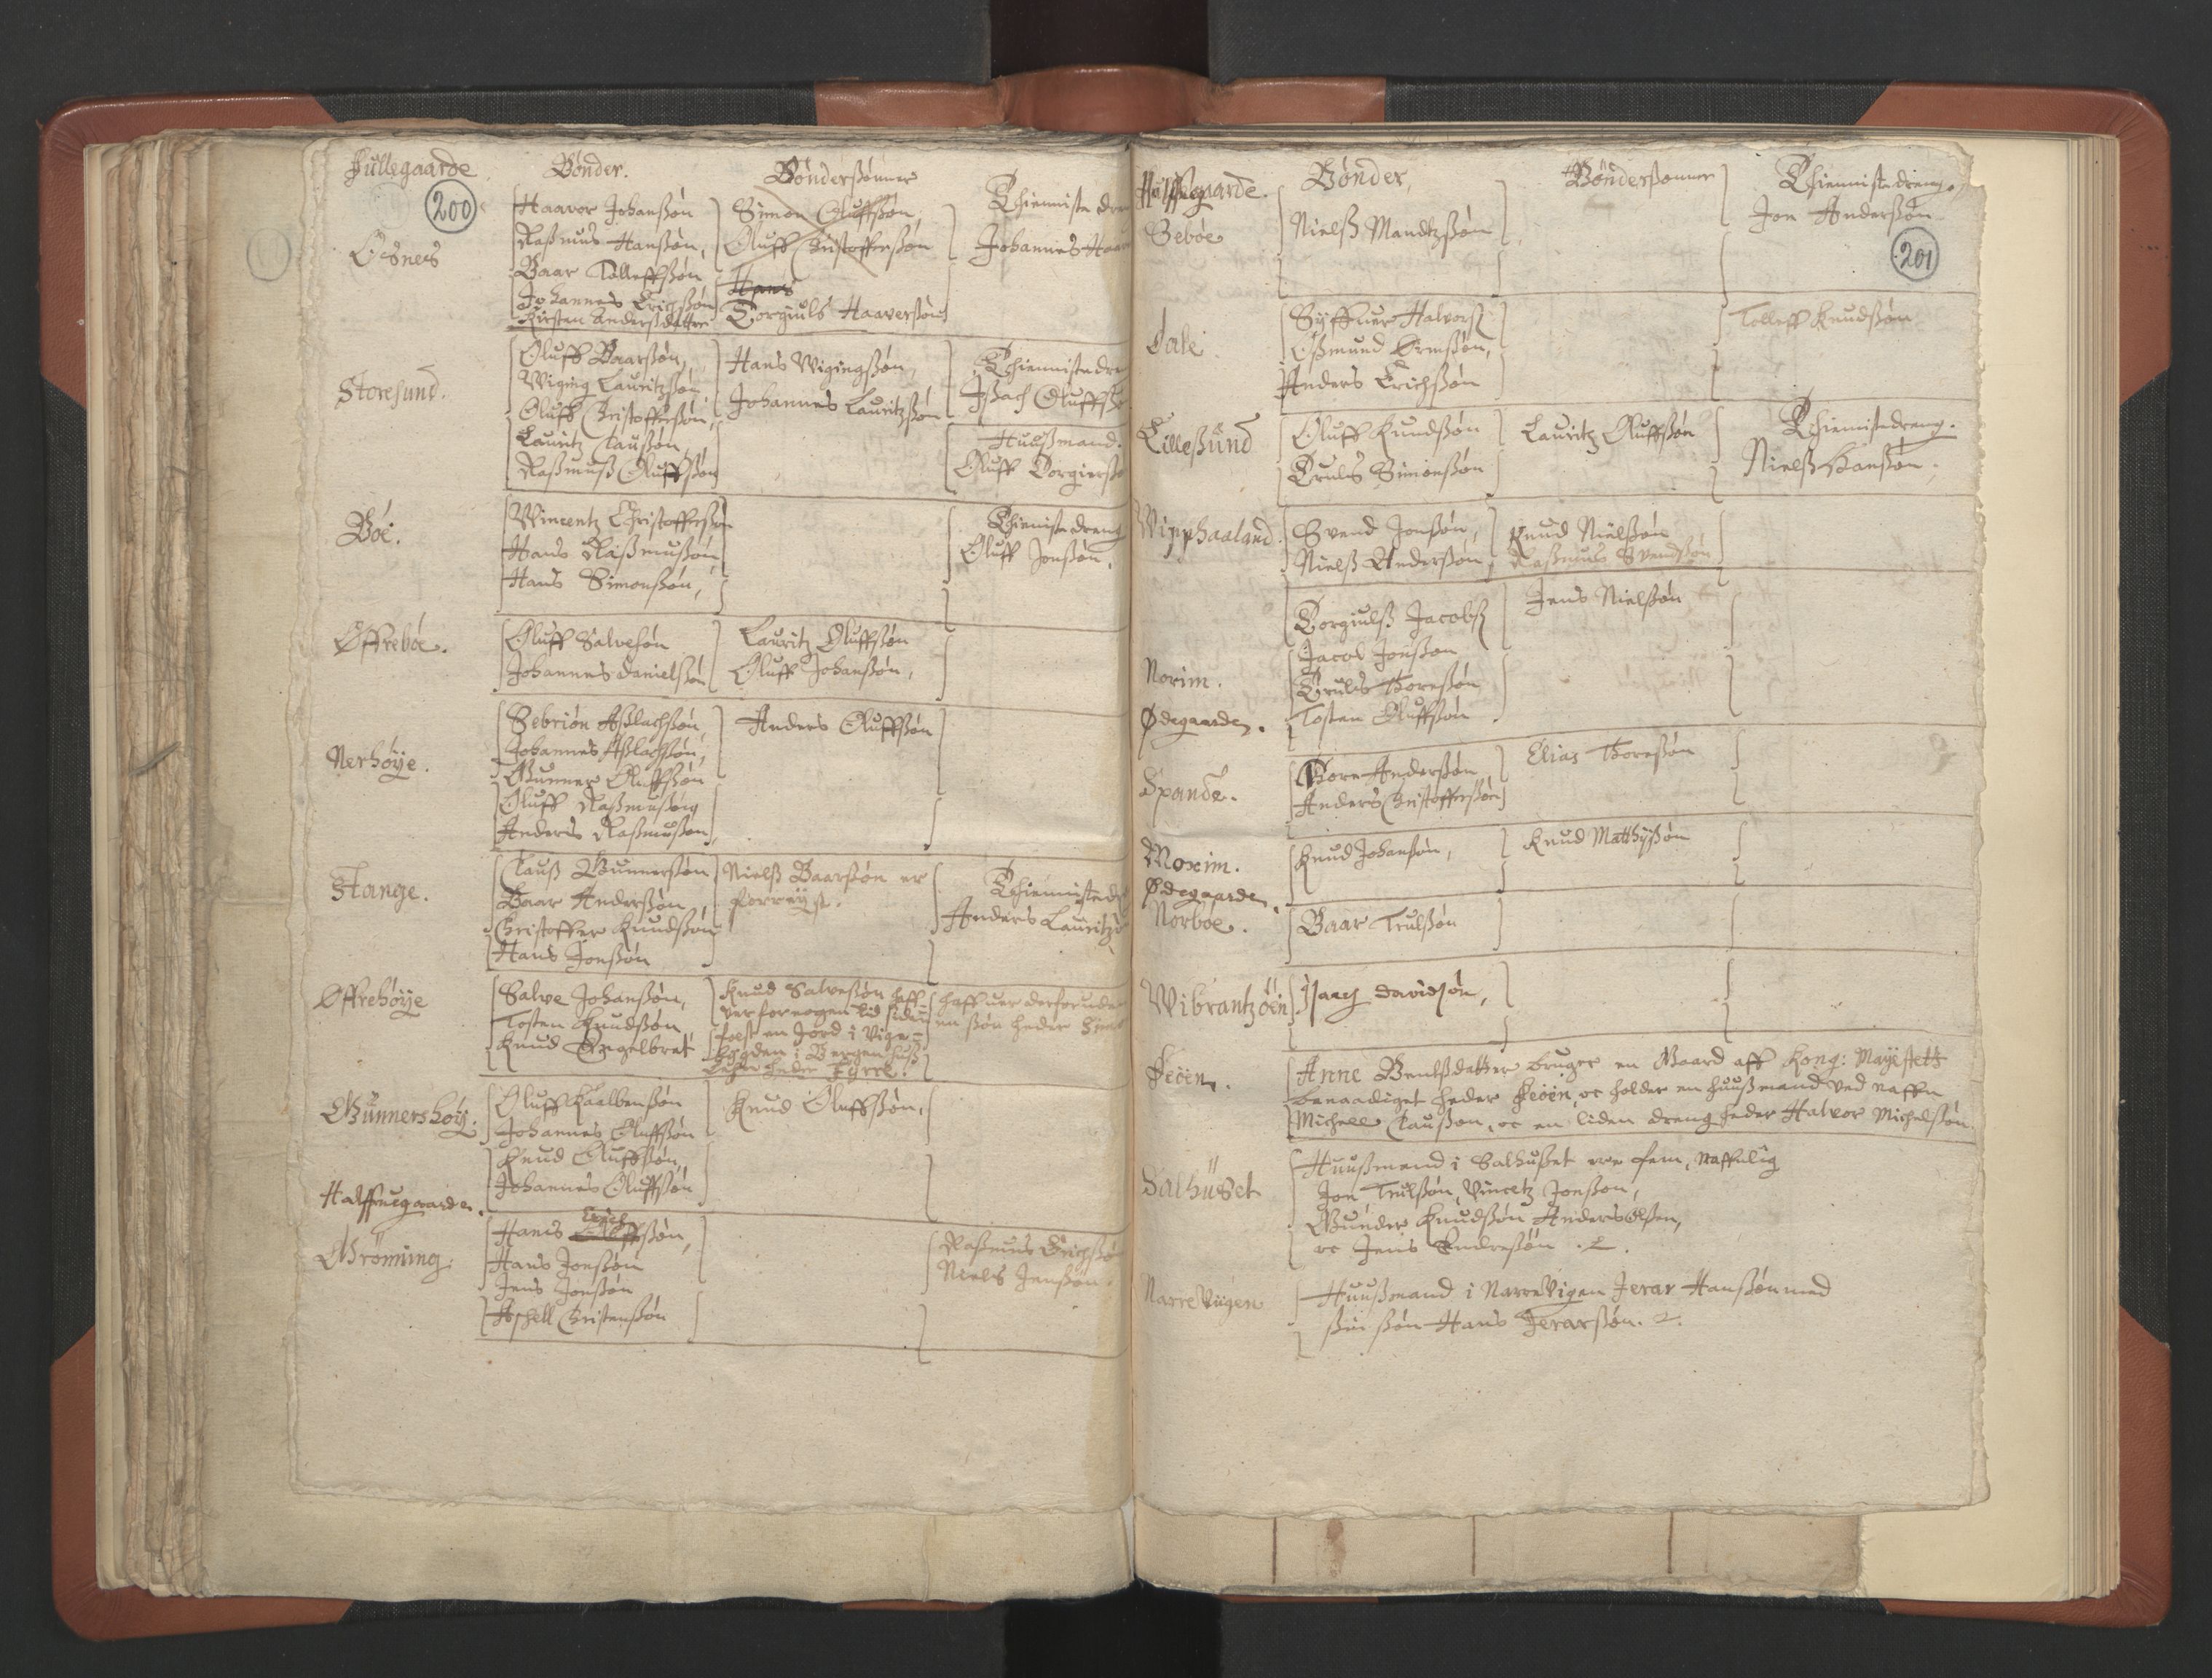 Fullegaarde
Bønder.
Bønderßønner
Thienniste dre
200
Osnes
Haavor Johanßøn
Raßmus Hanßøn,
Baar Tølleffßøn
Johannes Erichßøn
Kirsten Anderßdatter
Simon Oluffßøn,
Oluff Christofferßøn
Hans
Torgiuls Haaverßøn
Johannes Haa
Storesund.
Oluff Baarßøn,
Wiging Lauritzßøn
Oluff Christofferßøn,
Lauritz Claußøn,
Raßmuß Oluffßøn
Hans Wigingßøn,
Johannes Lauritzßøn
Thienniste dre
Jßach Oluffßø
Hußmand.
Oluff Torgierßø
Böe.
Wincentz Christofferßøn
Hans Raßmußøn
Hans Simonßøn,
Thieniste dreng
Oluff Jonßøn,
Øffrebøe.
Oluff Salvesøn
Johannes Danielßøn
Lauritz Oluffßøn
Oluff Johanßøn,
Nerhøÿe.
Sebriøn Aßlachßøn,
Johannes Aßlachßøn,
Gunner Oluffßøn
Oluff Raßmußøn
Anders Raßmußøn,
Anders Oluffßøn
Stange.
Clauß Gunnerßøn
Baar Anderßøn
Christoffer Knudßøn
Hans Jonßøn
Nielß Baarßøn er
forreÿst.
Thienniste d
Anders Lauritz
Øffrehøÿe
Salve Johanßøn,
Tosten Knudßøn,
Knud Engelbret
Knud Salveßøn haff
ver for nogen tid siden
fæst en Jord i Vige-
bøgden i Bergenhuß
Lehn heder Fyrre.
haffuer derforuden
en søn heder Sim
Gunnershøÿ.
Oluff Kaalbenßøn
Johannes Oluffßøn
Knud Oluffßøn,
Johannes Oluffßøn
Knud Oluffßøn,
Halffuegaarde.
Grønning.
Hans Erich Oluffßøn,
Hans Jonßøn
Jens Jonßøn
Aschell Christenßøn
Raßmus Erichßø
Niels Jenßøn.
Halffuegaarde.
Bønder,
Bønderßønner
Thiennistedreng,
Jon Anderßøn
201
Sebøe
Nielß Mandtzßøn
Dale.
Siffuer Halvorß
Oßmund Ormßøn,
Anders Erichßøn
Tolleff Knudßøn
Lilleßund
Oluff Knudßøn
Truls Simonßøn
Lauritz Oluffßøn
Thiennistedreng.
Nielß Hanßøn.
Wipphaaland.
Svend Jonßøn,
Nielß Anderßøn
Knud Nielßøn
Raßmus Svendßøn
Norim.
Torgiulß Jacobß
Jacob Jonßøn
Truls Thoreßøn
Tosten Oluffßøn
Jens Nielßøn
Ødegaarde.
Spande.
Thore Anderßøn
Anders Christofferßøn
Elias Thoreßøn
Moxim.
Knud Johanßøn,
Knud Matthÿßøn
Ødegaarde.
Norbøe.
Baar Trulßøn
Wibrantzøen
Jsaach Davidsøn,
Feøen.
Anne Bentßdatter bruger en Gaard aff Kong: Mayestetz
benaadiget heder Feøen, oc holder en huußmand ved naffn
Michell Claußøn, oc en liden dreng heder Halvor Michelsøn.
Salhuset
Huußmend i Salhußet ere fem, naffnlig
Jon Trulßøn, Vincetz Jonßøn,
Gunder Knudßøn, Anders Olsøn,
oc Jens Endreßøn.
Narreviigen
Huußmand i Narrevigen Jerar Hanßøn med
sin søn Hans Jerarsøn.